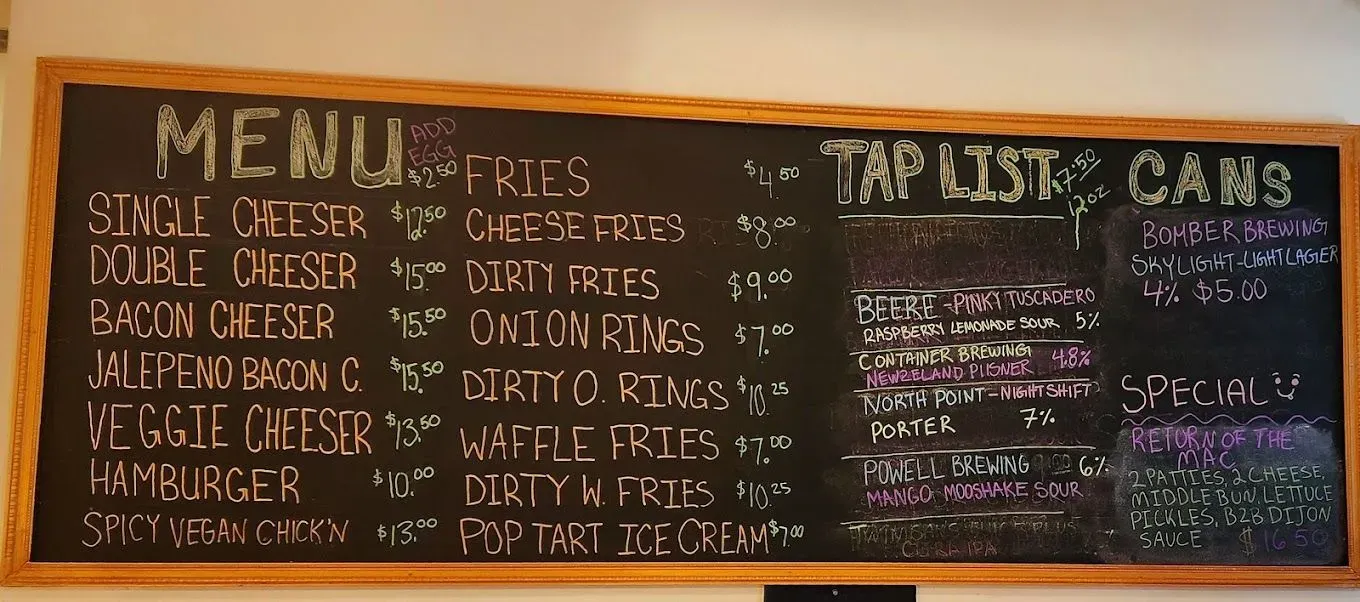 MENU
ADD
EGG
$2.50
SINGLE CHEESER $12.50
DOUBLE CHEESER $15.00
BACON CHEESER $15.50
JALEPENO BACON C. $15.50
VEGGIE CHEESER $13.50
HAMBURGER $10.00
SPICY VEGAN CHICK'N $13.00
FRIES $4.50
CHEESE FRIES $8.00
DIRTY FRIES $9.00
ONION RINGS $7.00
DIRTY O. RINGS $10.25
WAFFLE FRIES $7.00
DIRTY W. FRIES $10.25
POP TART ICE CREAM $7.00
TAP LIST $7.50
12oz
BEERE - PINKY TUSCADERO
RASPBERRY LEMONADE SOUR 5%
CONTAINER BREWING 4.8%
NEWZELAND PILSNER
NORTH POINT - NIGHTSHIFT
PORTER 7%
POWELL BREWING 6%
MANGO MOOSHAKE SOUR
CANS
BOMBER BREWING
SKYLIGHT - LIGHT LAGER
4% $5.00
SPECIAL
RETURN OF THE
MAC
2 PATTIES, 2 CHEESE,
MIDDLE BUN, LETTUCE
PICKLES, B2B DIJON
SAUCE $16.50